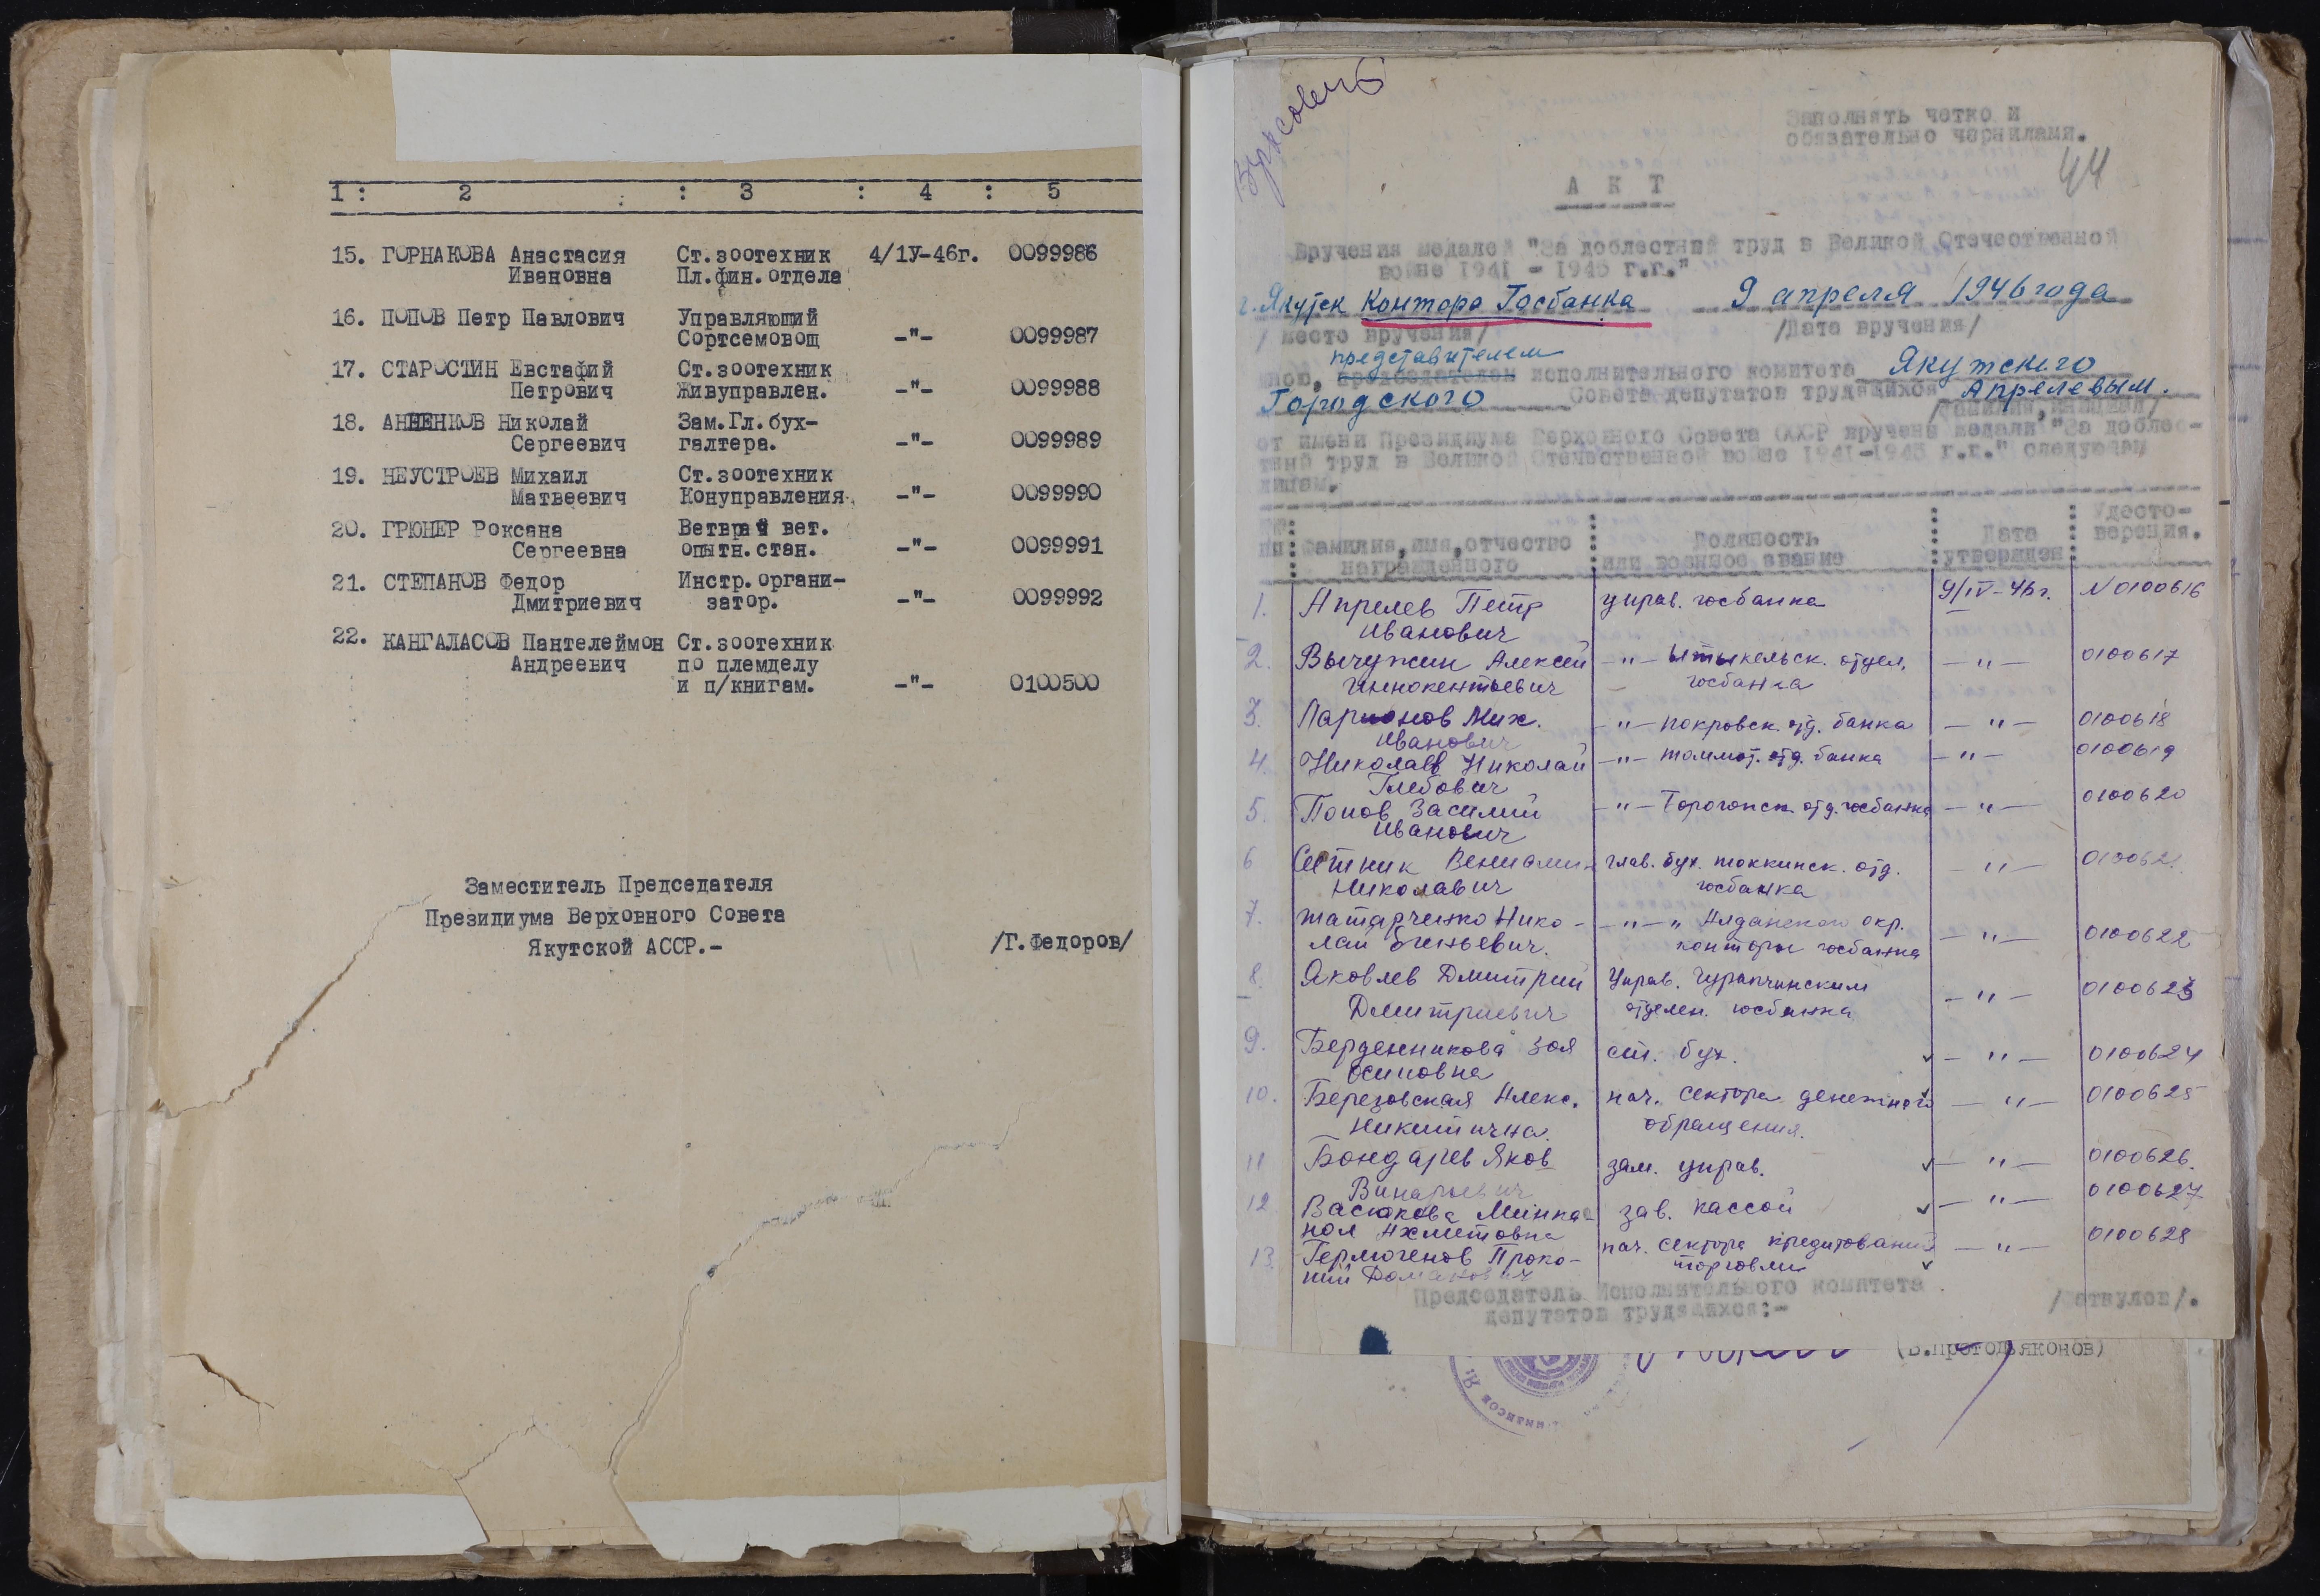 1 : 2 : 3 : 4 : 5
15. ГОРНАКОВА Анастасия Ст.зоотехник 4/1У-46г. 0099986
Ивановна Пл.фин.отдела
16. ПОПОВ Петр Павлович Управляющий
Сортсемовощ -"- 0099987
17. СТАРОСТИН Евстафий Ст.зоотехник
Петрович Живуправлен. -"- 0099988
18. АННЕНКОВ Николай Зам.Гл.бух-
Сергеевич галтера. -"- 0099989
19. НЕУСТРОЕВ Михаил Ст.зоотехник
Матвеевич Конуправления. -"- 0099990
20. ГРЮНЕР Роксана Ветврач вет.
Сергеевна опытн.стан. -"- 0099991
21. СТЕПАНОВ Федор Инстр.органи-
Дмитриевич затор. -"- 0099992
22. КАНГАЛАСОВ Пантелеймон Ст.зоотехник
Андреевич по племделу
и п/книгам. -"- 0100500
Заместитель Председателя
Президиума Верховного Совета
Якутской АССР.- /Г.Федоров/
Заполнять четко и
обязательно чернилами.
44
А К Т
Вручения медалей "За доблестный труд в Великой Отечественной
войне 1941 - 1945 г.г."
г. Якутск Контора Госбанка 9 апреля 1946 года
/место вручения/ /Дата вручения/
представителем
мною, председателем исполнительного комитета Якутского
Городского Совета депутатов трудящихся Апрелевым.
/фамилия, инициал/
от имени Президиума Верховного Совета СССР вручены медали "За доблес-
тный труд в Великой Отечественной войне 1941-1945 г.г." следующим
лицам.
№№ : : : Дата : Удесто-
пп : Фамилия, имя, отчество : Должность : утвержден : верения.
награжденного : или военное звание
1. Апрелев Петр управ. госбанка 9/IV-46г. N 0100616
Иванович
2. Вычужин Алексей -"- Ытыкельск. отдел. -"- 0100617
Иннокентьевич госбанка
3. Ларионов Мих. -"- покровск. отд. банка -"- 0100618
Иванович
4. Николаев Николай -"- томмот. отд. банка -"- 0100619
Глебович
5. Попов Василий -"- отд. госбанка -"- 0100620
Иванович
6 Сетник Вениамин глав. бух. токкинск. отд. -"- 010062
Николавич госбанка
7. Татарченко Нико- -"-" Алданской окр.
лай конторы госбанка -"- 0100622
8. Яковлев Дмитрий Управ. Чурапчинским -"- 0100623
Дмитриевич отделен. госбанка
9. Берденникова Зоя ст. бух. -"- 0100624
Осиповна
10. Березовская Алекс. нач. сектора денежного -"- 0100625
Никитична. обращения.
11 Бондарев Яков зам. управ. -"- 0100626.
12. Васюкова Минка- зав. кассой -"- 0100627
нол Ахметовна
13. Гермогенов Проко- нач. сектора кредитования -"- 0100628
пий торговли
Председатель Исполнительного комитета
депутатов трудящихся:-
(В.Протодьяконов)